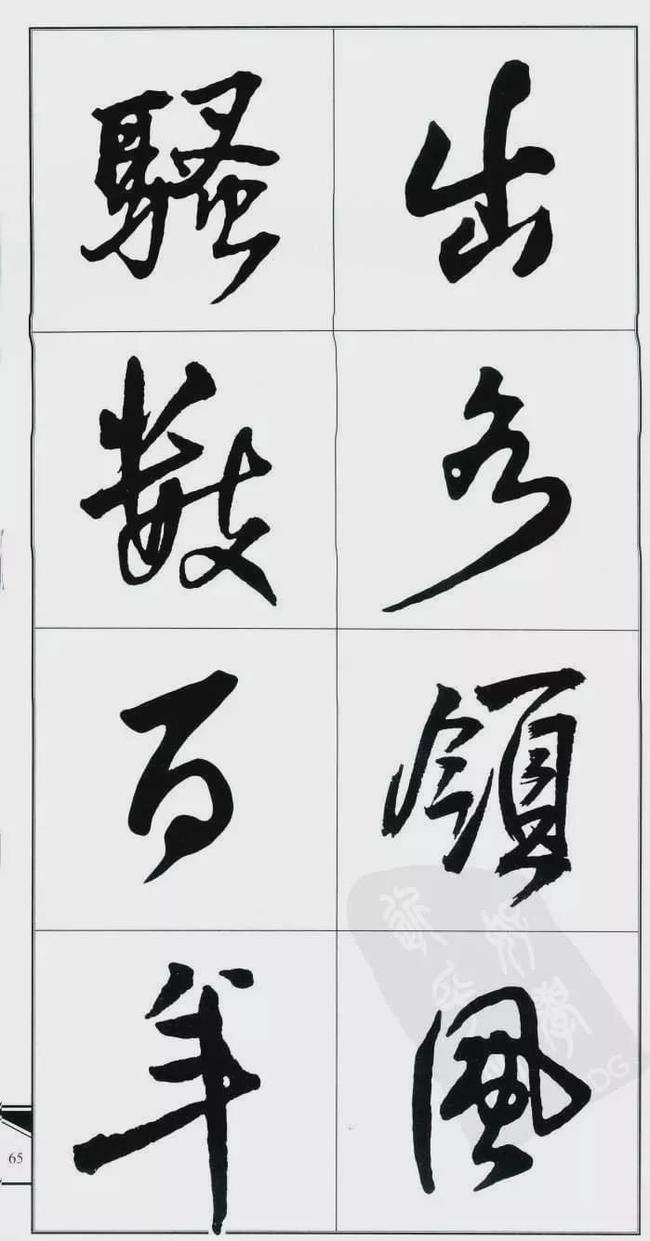 出各領風
騷數百年
65